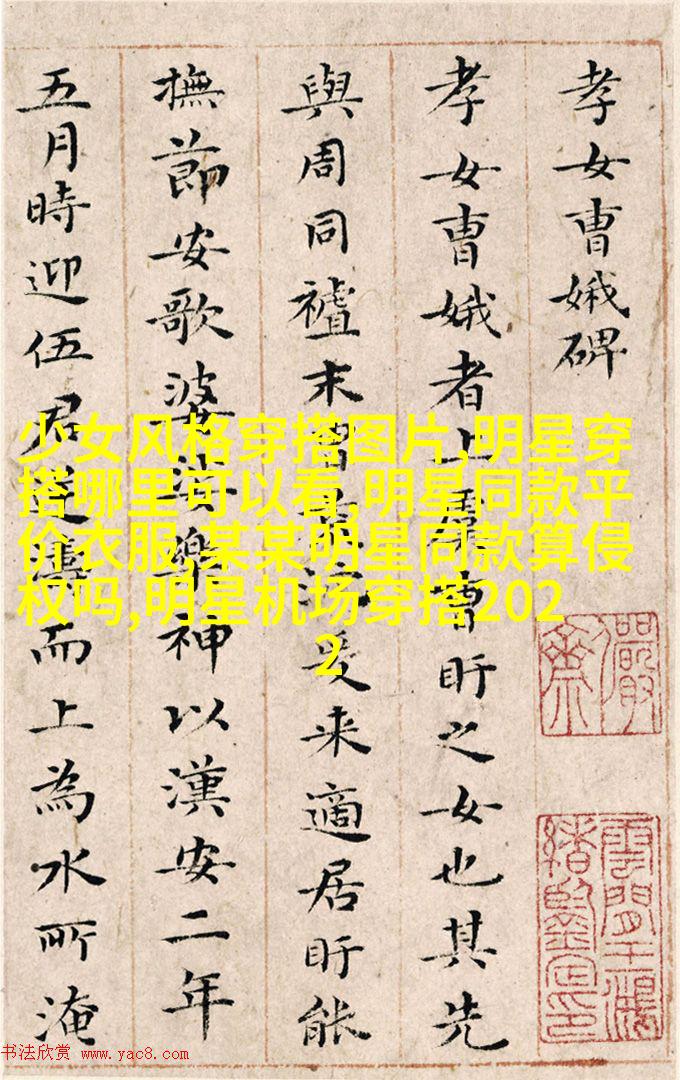 孝女曹娥碑
孝女曹娥者上虞曹盱之女也其先
與周同末爰来適居盱能
撫節安歌婆娑樂神以漢安二年
五月時迎伍君逆濤而上為水所淹
少女风格穿搭图片,明星穿
搭哪里可以看,明星同款平
价衣服,某某明星同款算侵
权吗,明星机场穿搭202
2
儼齋
雲間王鴻
緒鑒定印
书法欣赏 www.yac8.com